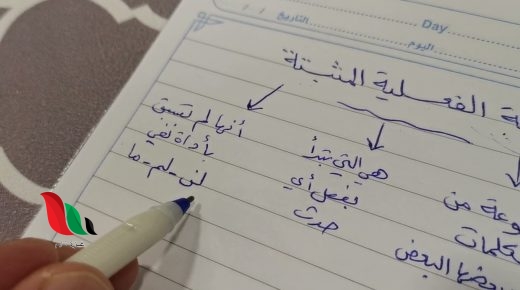 Day
التاريخ / /
اليوم
الفعلية المثبتة
وعة من
كلمات
البعض
هي التي تبدأ
بفعل أي
حدث
أنها لم تسبق
بأداة نفي
لن - لم - ما